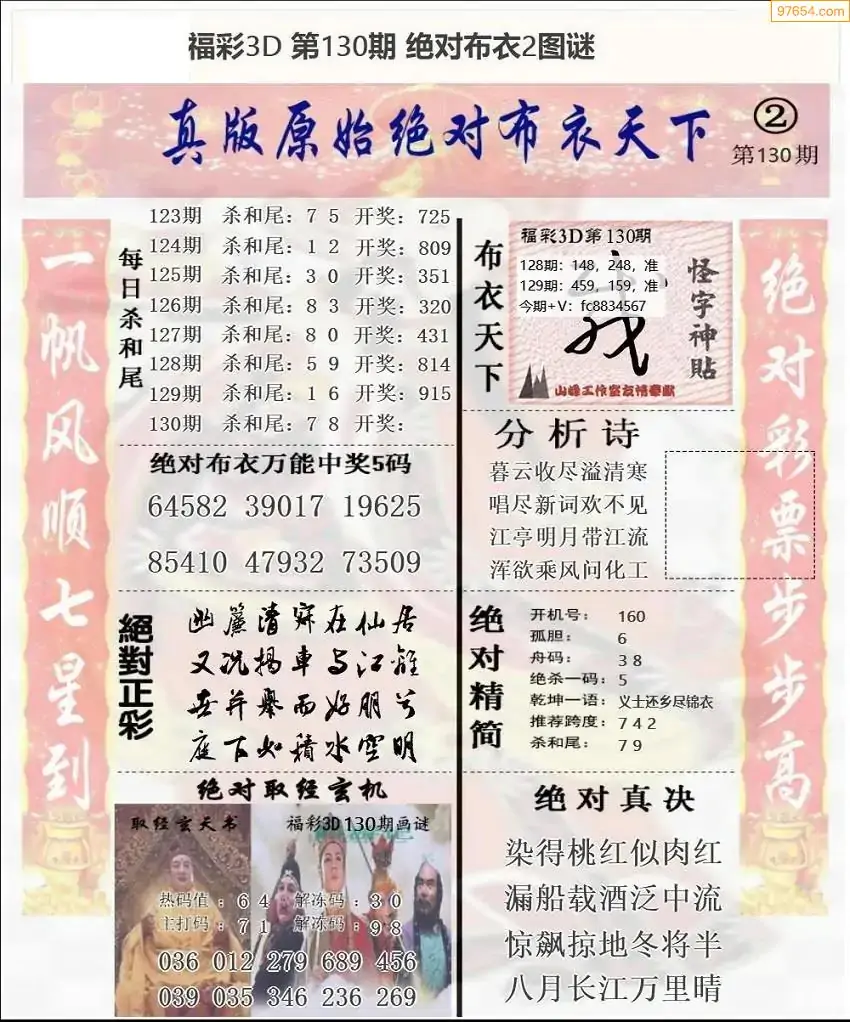 97654.com
福彩3D 第130期 绝对布衣2图谜
真版原始绝对布衣天下
②
第130期
一帆风顺七星到
每日杀和尾
123期 杀和尾：7 5 开奖：725
124期 杀和尾：1 2 开奖：809
125期 杀和尾：3 0 开奖：351
126期 杀和尾：8 3 开奖：320
127期 杀和尾：8 0 开奖：431
128期 杀和尾：5 9 开奖：814
129期 杀和尾：1 6 开奖：915
130期 杀和尾：7 8 开奖：
绝对布衣万能中奖5码
64582 39017 19625
85410 47932 73509
絕對正彩
幽簾清寂在仙居
又况揭車与江離
世并舉而好朋兮
庭下如積水空明
绝对取经玄机
取经玄天书
福彩3D130期画谜
热码值：6 4 解冻码：3 0
主打码：7 1 解冻码：9 8
036 012 279 689 456
039 035 346 236 269
布衣天下
福彩3D第130期
128期：148，248，准
129期：459，159，准
今期+V：fc8834567
怪字神贴
山峰工作室友情奉献
分析诗
暮云收尽溢清寒
唱尽新词欢不见
江亭明月带江流
浑欲乘风问化工
绝对精简
开机号： 160
孤胆： 6
舟码： 3 8
绝杀一码：5
乾坤一语：义士还乡尽锦衣
推荐跨度：7 4 2
杀和尾： 7 9
绝对真决
染得桃红似肉红
漏船载酒泛中流
惊飙掠地冬将半
八月长江万里晴
绝对彩票步步高